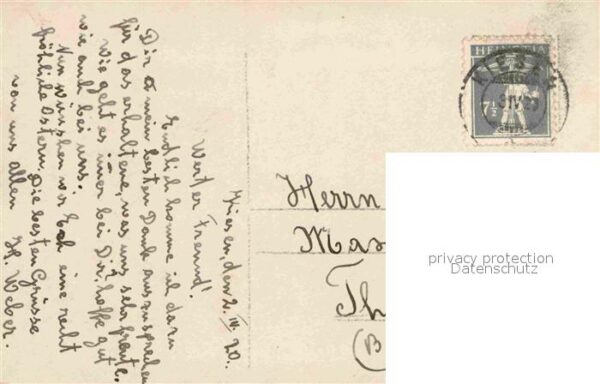 Kiesen, den 2. IV. 20.
Werter Freund!
Endlich komme ich dazu
Dir meinen besten Dank auszusprechen
für das erhaltene, was uns sehr freute.
Wie geht es immer bei Dir? hoffe gut
wie auch bei uns.
Nun wünschen wir Euch eine recht
fröhliche Ostern. Die besten Grüsse
von uns allen H. Weber.
HELVETIA
7½
KIESEN
Herrn
Mas
Th
(B
privacy protection
Datenschutz